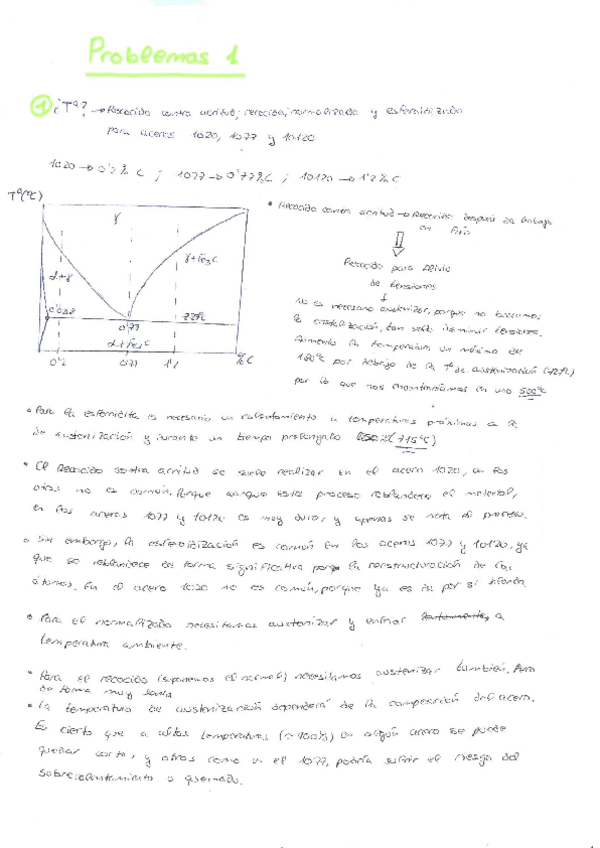 Problemas 1
① ¿Tª? → Recocido contra acritud, recocido, normalizado y esferoidizado
para aceros 1020, 1077 y 10120
1020 → 0'2% C ; 1077 → 0'77%C ; 10120 → 1'2% C
Tª(ºC)
γ
γ+Fe3C
α+γ
0'77
α+Fe3C
0'2 0'77 1'2 %C
• Recocido contra acritud → Recocido después de trabajo
en frío
Recocido para Alivio
de tensiones
No es necesario austenizar, porque no buscamos
la cristalización, tan solo disminuir tensiones.
Aumento la temperatura un mínimo de
por debajo de la Tª de austenización
por lo que nos encontraríamos en uno 500ºC
• Para la esferoidita es necesario un calentamiento a temperaturas próximas a la
de austenización y durante un tiempo prolongado (715ºC)
• El Recocido contra acritud se suele realizar en el acero 1020, en los
otros no es común, Porque aunque este proceso reblandece el material,
en los aceros 1077 y 10120 es muy duro, y apenas se nota el proceso.
• Sin embargo, la esferoidización es común en los aceros 1077 y 10120, ya
que se reblandece de forma significativa por la reestructuración de los
átomos. En el acero 1020 no es común, porque ya es de por sí blando.
• Para el normalizado necesitamos austenizar y enfriar a
temperatura ambiente.
• Para el recocido (suponemos el normal) necesitamos austenizar también, Pero
de forma muy lenta
• La temperatura de austenización dependerá de la composición del acero.
Es cierto que a altas temperaturas en algún acero se puede
quedar corto, y otros como en el 1077, podría sufrir el riesgo del
sobrecalentamiento o quemado.